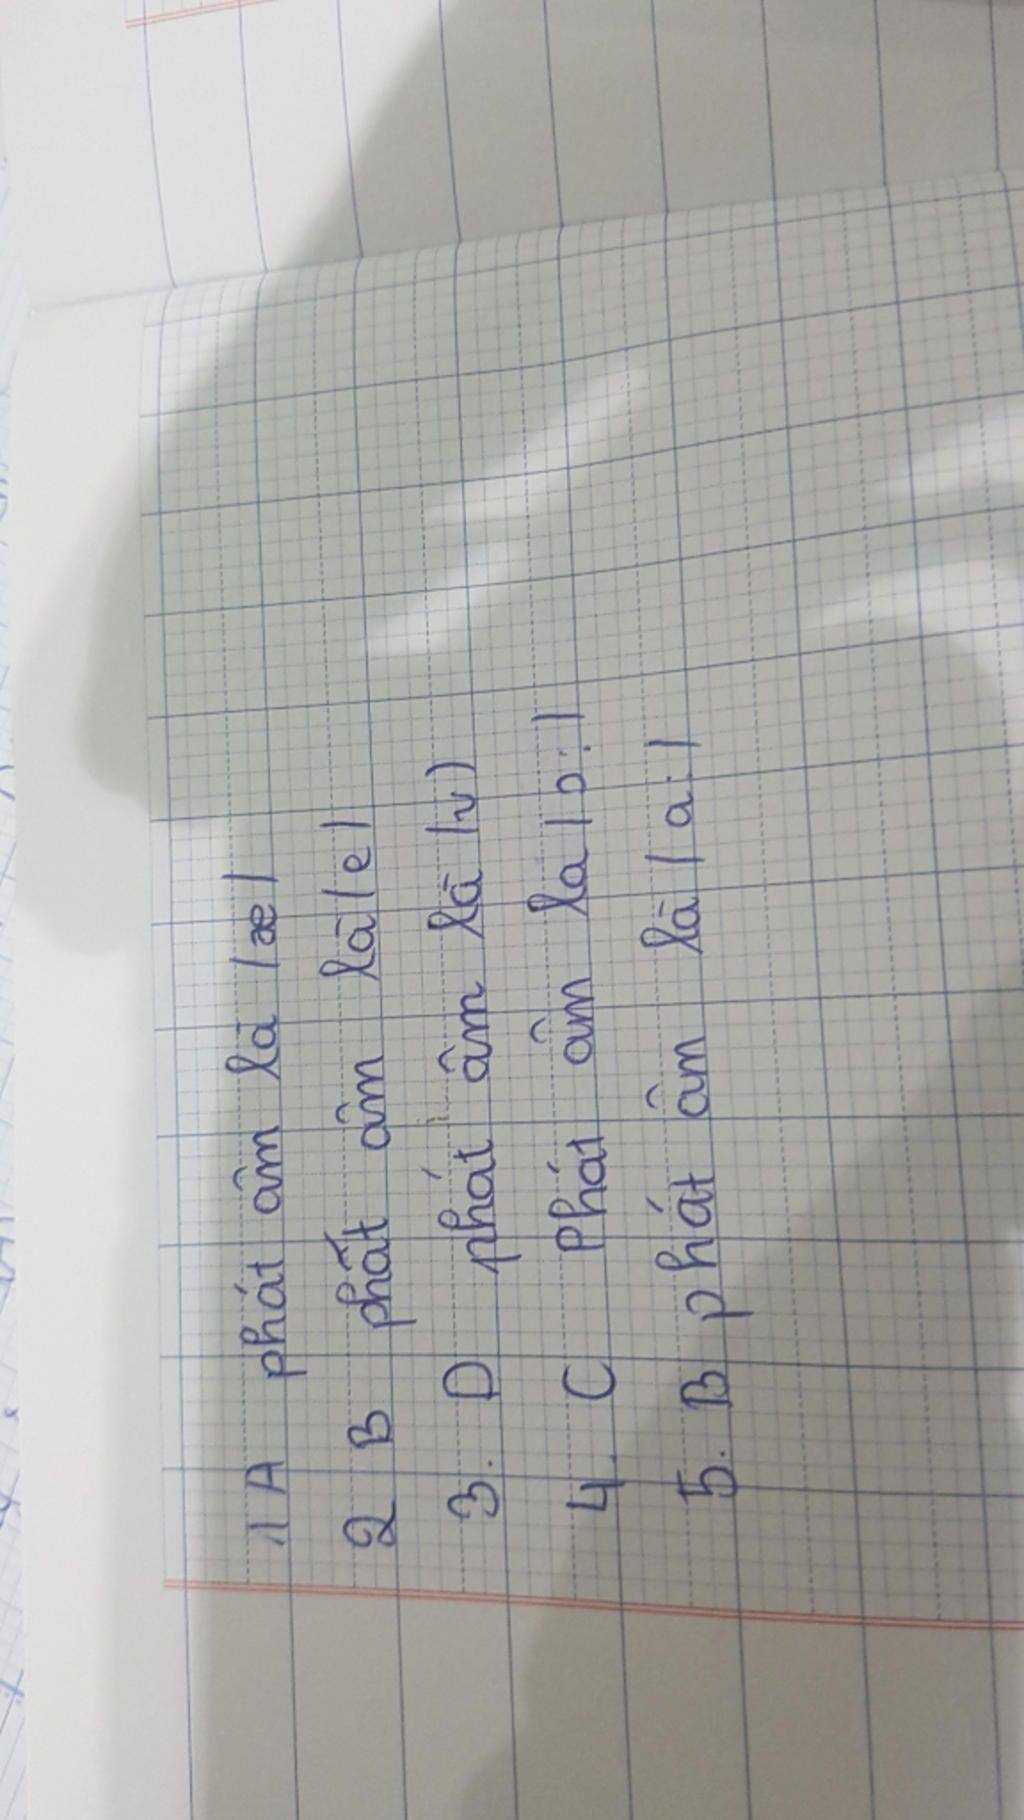 1 A phát âm là |æ|
2 B phất âm là |e|
3. D phát âm là |v)
4. C Phát âm la |ɔ:|
5. B phát âm là |a:|